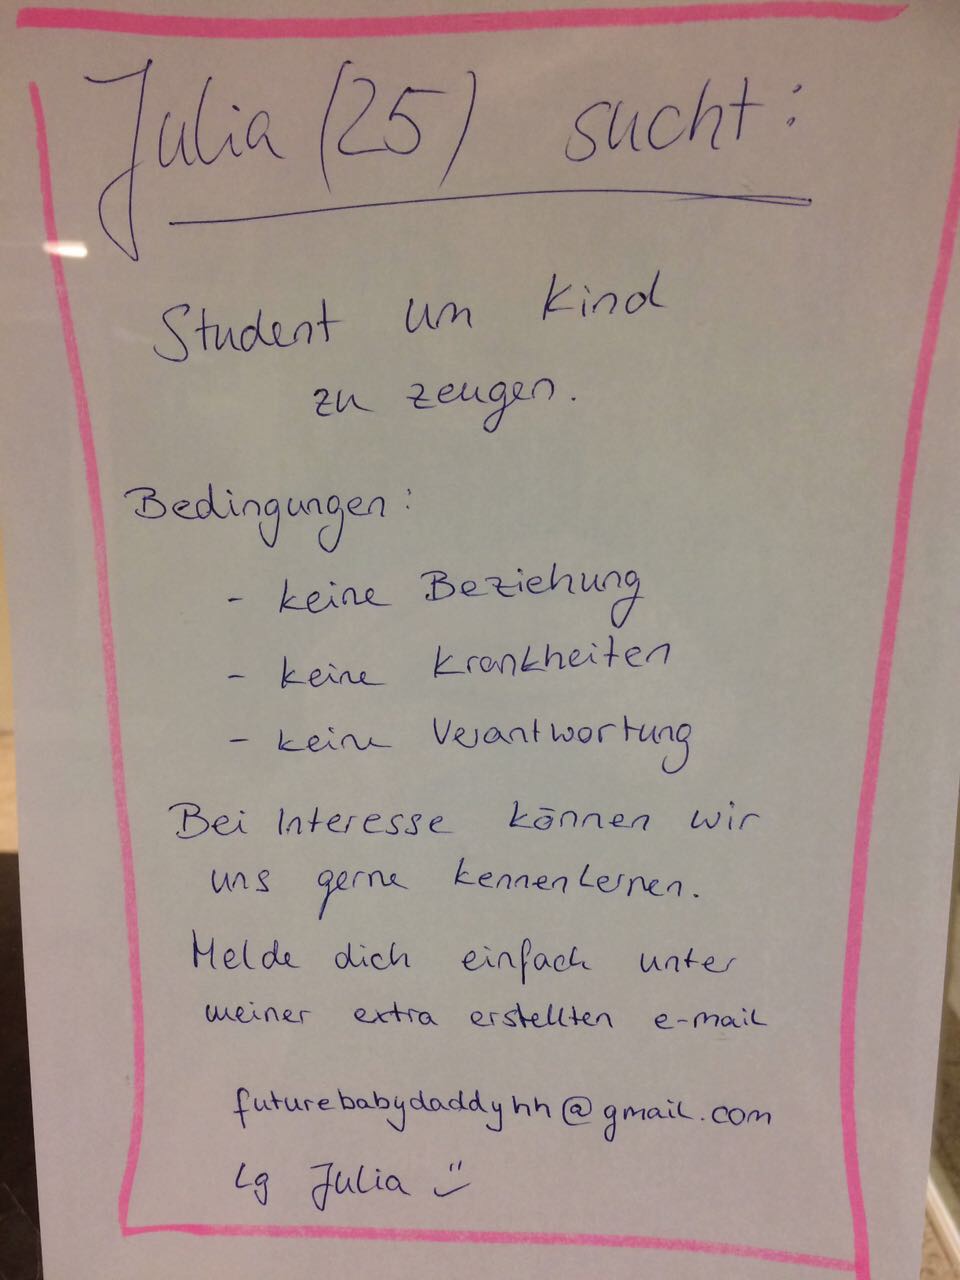 Julia (25) sucht:
Student um Kind
zu zeugen.
Bedingungen:
- keine Beziehung
- keine Krankheiten
- keine Verantwortung
Bei Interesse können wir
uns gerne kennenlernen.
Melde dich einfach unter
meiner extra erstellten e-mail
futurebabydaddyhh@gmail.com
Lg Julia ü